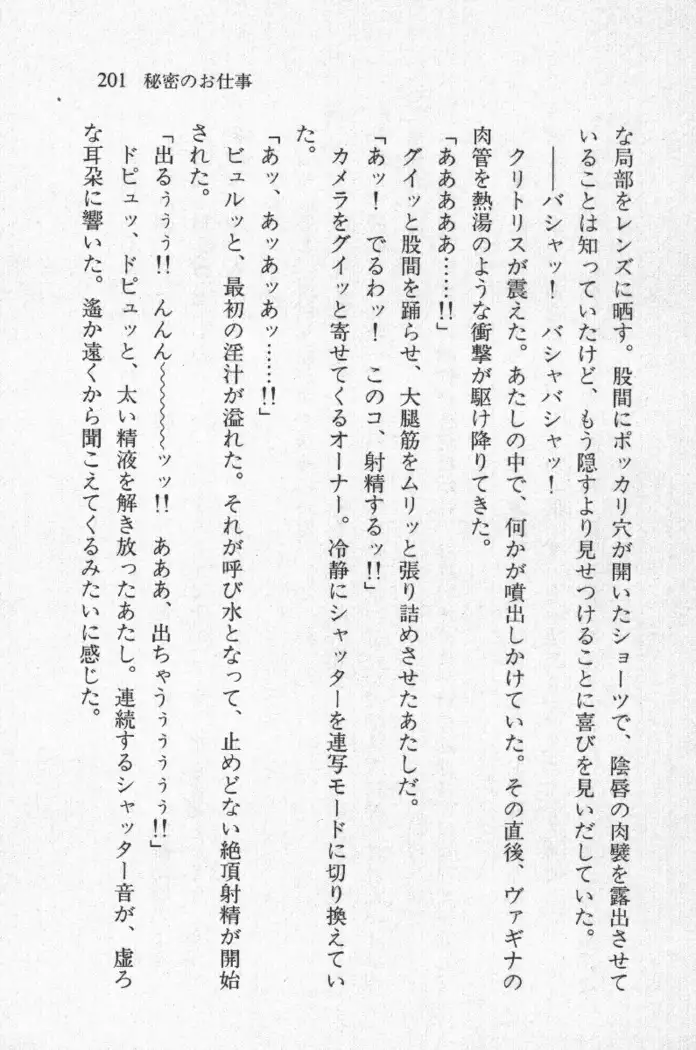 201 秘密のお仕事
な局部をレンズに晒す。股間にポッカリ穴が開いたショーツで、陰唇の肉襞を露出させて
いることは知っていたけど、もう隠すより見せつけることに喜びを見いだしていた。
――バシャッ！　バシャバシャッ！
クリトリスが震えた。あたしの中で、何かが噴出しかけていた。その直後、ヴァギナの
肉管を熱湯のような衝撃が駆け降りてきた。
「あああああ……!!」
グイッと股間を踊らせ、大腿筋をムリッと張り詰めさせたあたしだ。
「あッ！　でるわッ！　このコ、射精するッ!!」
カメラをグイッと寄せてくるオーナー。冷静にシャッターを連写モードに切り換えてい
た。
「あッ、あッあッあッ……!!」
ビュルッと、最初の淫汁が溢れた。それが呼び水となって、止めどない絶頂射精が開始
された。
「出るぅぅぅ!!　んんん〜〜〜〜〜ッッ!!　あああ、出ちゃうぅぅぅぅぅ!!」
ドピュッ、ドピュッと、太い精液を解き放ったあたし。連続するシャッター音が、虚ろ
な耳朶に響いた。遙か遠くから聞こえてくるみたいに感じた。